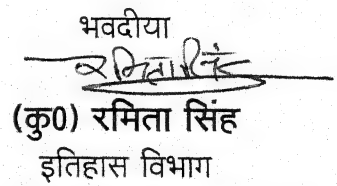 भवदीया
रमिता सिंह
(कु0) रमिता सिंह
इतिहास विभाग